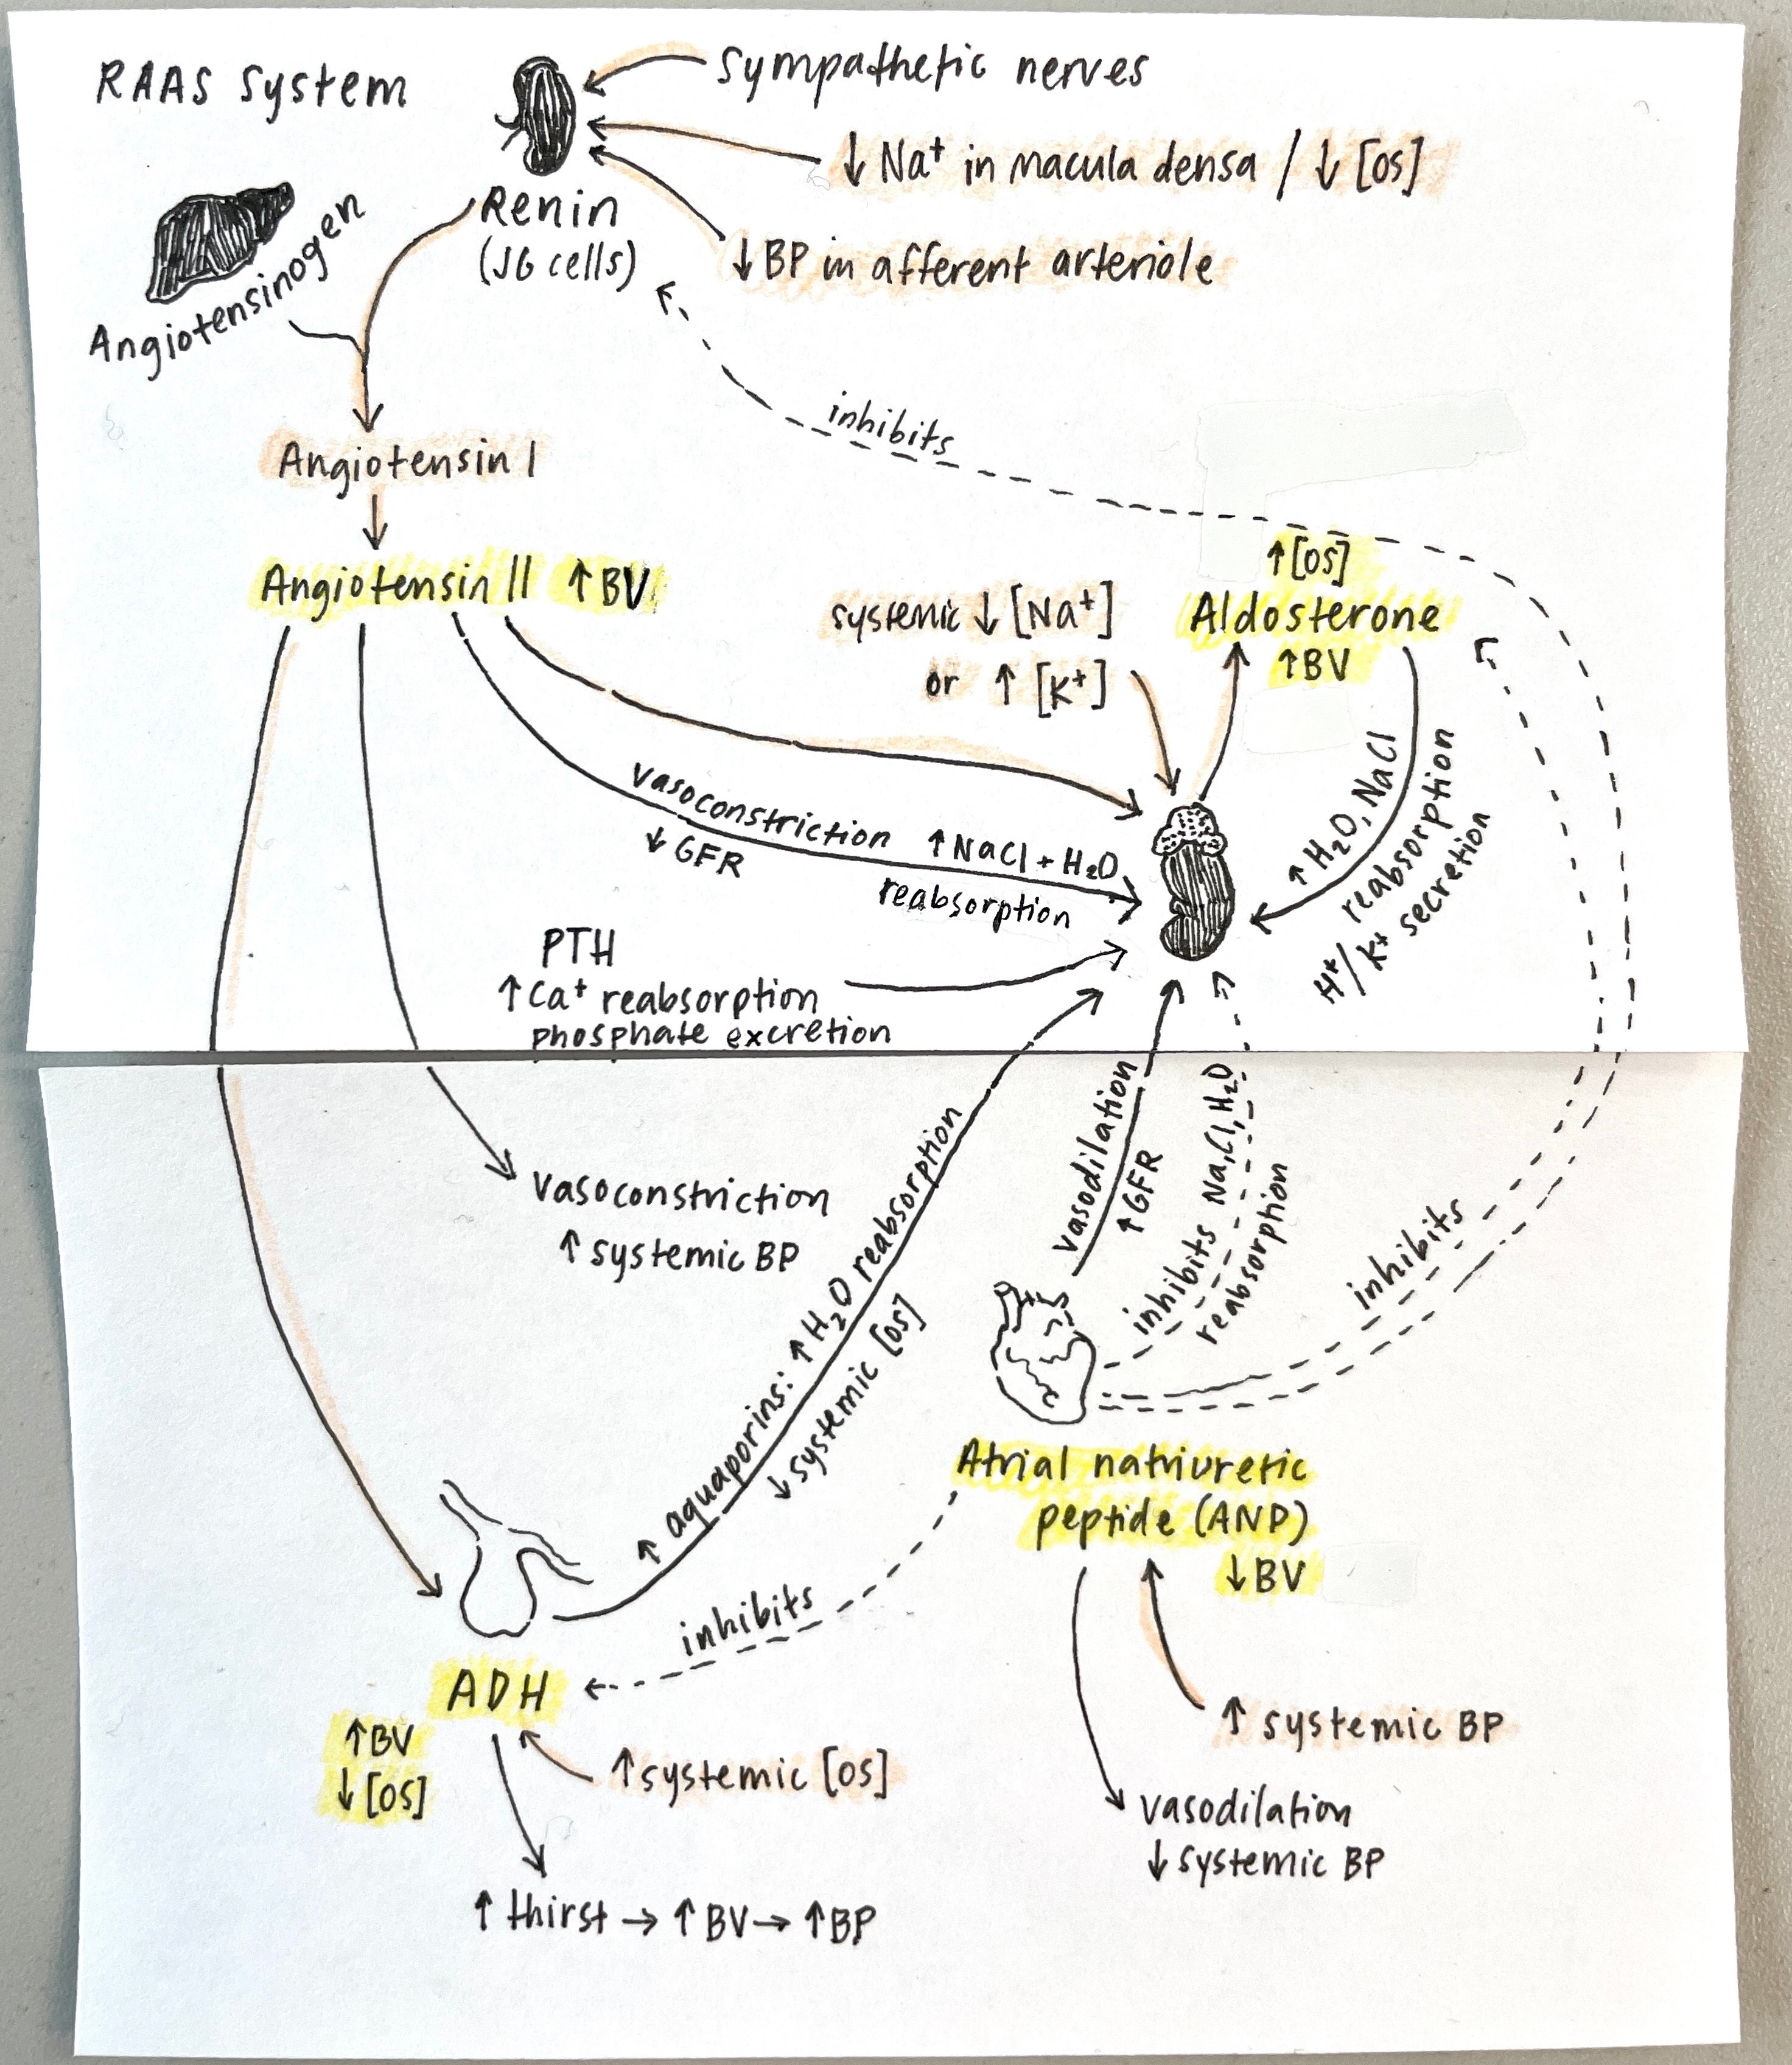 RAAS System
Sympathetic nerves
↓ Na⁺ in macula densa / ↓ [OS]
Renin
(JG cells)
↓ BP in afferent arteriole
Angiotensinogen
inhibits
Angiotensin I
Angiotensin II ↑ BV
systemic ↓ [Na⁺]
or ↑ [K⁺]
↑ [OS]
Aldosterone
↑ BV
vasoconstriction
↓ GFR
↑ NaCl + H₂O
reabsorption
↑ H₂O, NaCl
reabsorption
H⁺/K⁺ secretion
PTH
↑ Ca⁺ reabsorption
phosphate excretion
vasoconstriction
↑ systemic BP
↑ aquaporins: ↑ H₂O reabsorption
↓ systemic [OS]
vasodilation
↑ GFR
inhibits Na, Cl, H₂O
reabsorption
inhibits
Atrial natriuretic
peptide (ANP)
↓ BV
inhibits
ADH
↑ BV
↓ [OS]
↑ systemic [OS]
↑ systemic BP
vasodilation
↓ systemic BP
↑ thirst → ↑ BV → ↑ BP